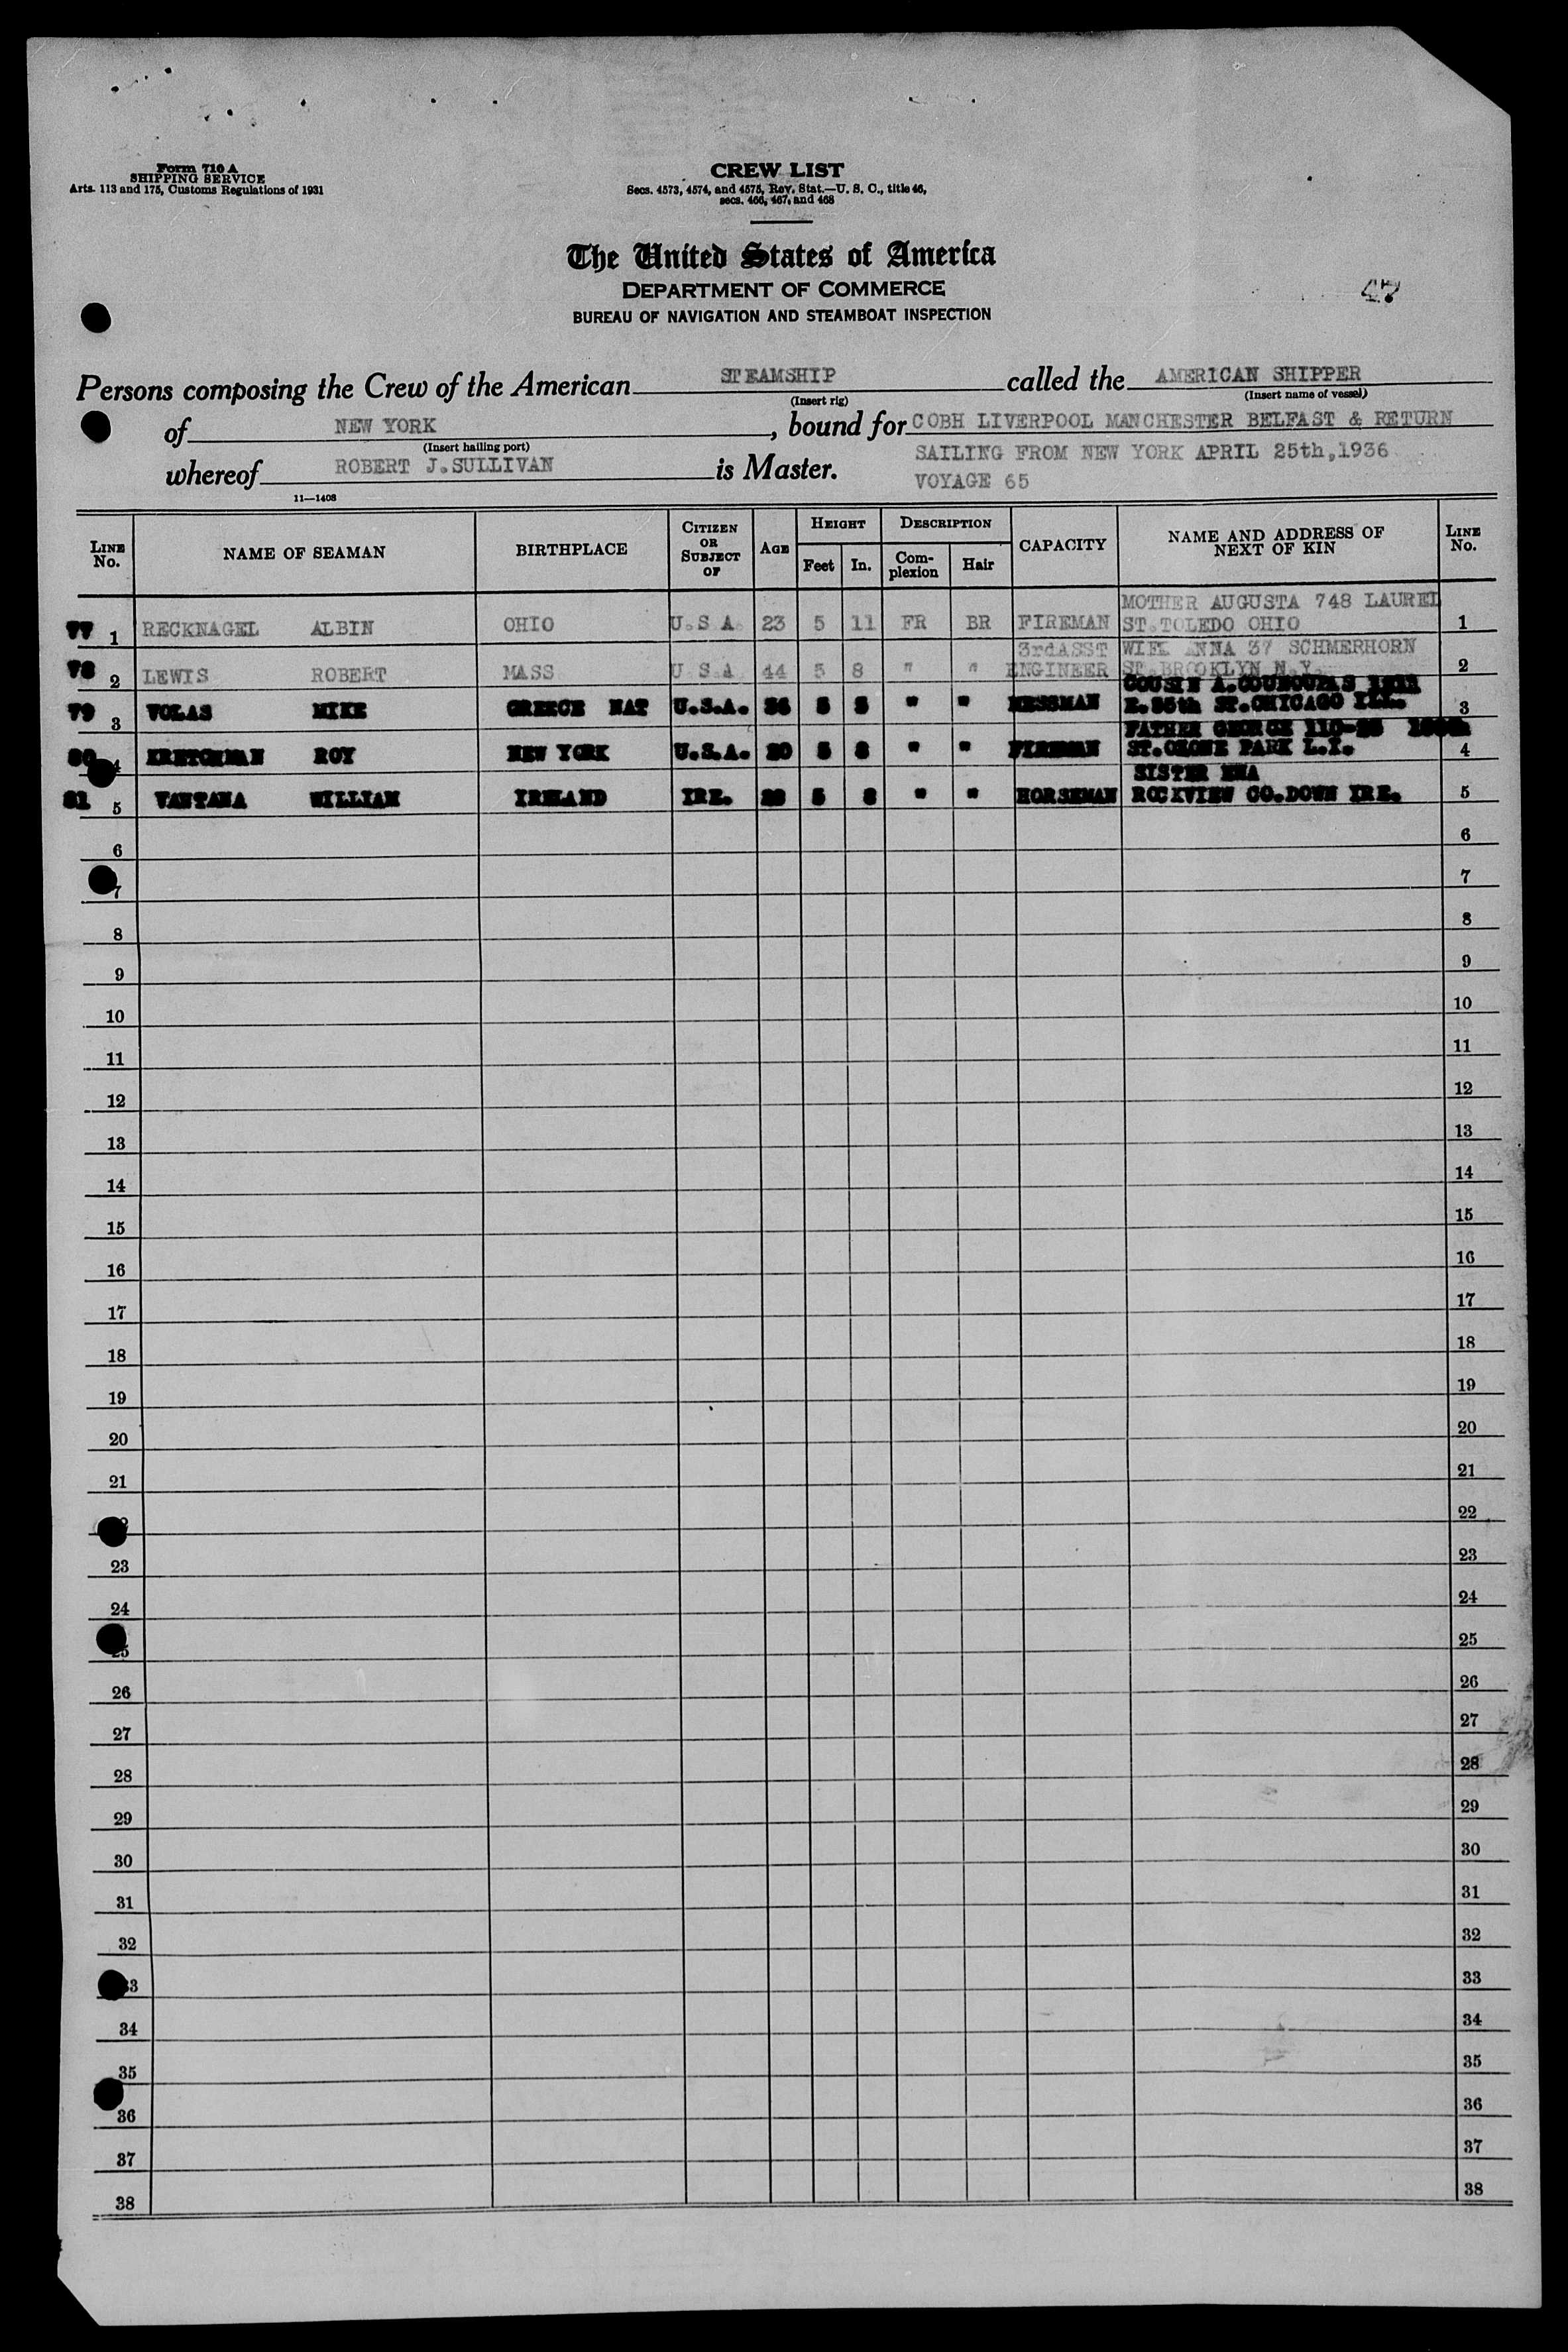 Form 710 A
SHIPPING SERVICE
Arts. 113 and 175, Customs Regulations of 1931
CREW LIST
Secs. 4573, 4574, and 4575, Rev. Stat.—U. S. C., title 46,
secs. 466, 467, and 468
The United States of America
DEPARTMENT OF COMMERCE
BUREAU OF NAVIGATION AND STEAMBOAT INSPECTION
47
Persons composing the Crew of the American STEAMSHIP called the AMERICAN SHIPPER
(Insert rig) (Insert name of vessel)
of NEW YORK, bound for COBH LIVERPOOL MANCHESTER BELFAST & RETURN
(Insert hailing port)
whereof ROBERT J.SULLIVAN is Master. SAILING FROM NEW YORK APRIL 25th,1936
VOYAGE 65
11—1408
LINE No. NAME OF SEAMAN BIRTHPLACE CITIZEN OR SUBJECT OF AGE HEIGHT Feet In. DESCRIPTION Complexion Hair CAPACITY NAME AND ADDRESS OF NEXT OF KIN LINE No.
MOTHER AUGUSTA 748 LAUREL
77 1 RECKNAGEL ALBIN OHIO U.S A. 23 5 11 FR BR FIREMAN ST.TOLEDO OHIO 1
3rdASST WIFE ANNA 37 SCHMERHORN
78 2 LEWIS ROBERT MASS U.S.A. 44 5 8 " " ENGINEER ST.BROOKLYN N.Y. 2
COUSIN A.
79 3 VOLAS MIKE GREECE NAT U.S.A. 36 5 5 " " MESSMAN E.55th ST.CHICAGO ILL. 3
FATHER GEORGE
80 4 KRETCHMAN ROY NEW YORK U.S.A. 20 5 8 " " FIREMAN ST.OZONE PARK L.I. 4
SISTER
81 5 WILLIAM IRELAND IRE. 5 8 " " HORSEMAN ROCKVIEW CO.DOWN IRE. 5
6 6
7 7
8 8
9 9
10 10
11 11
12 12
13 13
14 14
15 15
16 16
17 17
18 18
19 19
20 20
21 21
22
23 23
24 24
25 25
26 26
27 27
28 28
29 29
30 30
31 31
32 32
33 33
34 34
35 35
36 36
37 37
38 38